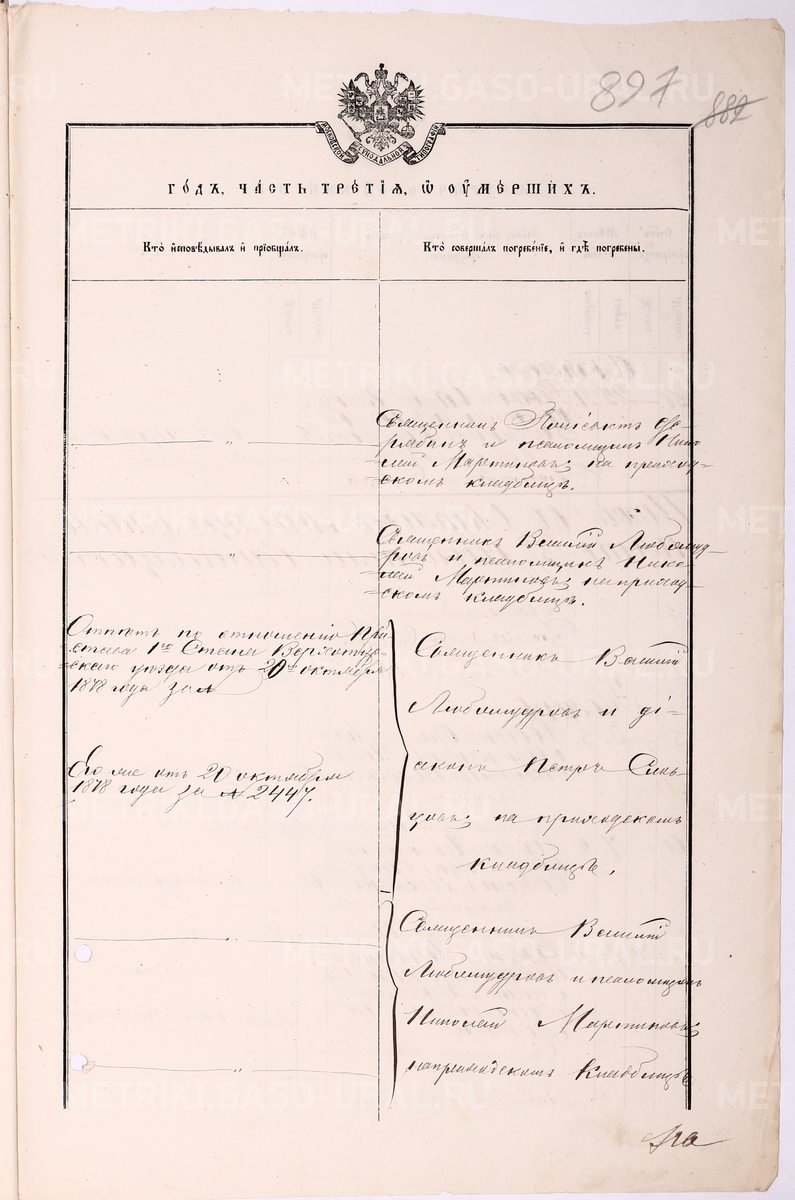 897
882
МОСКОВСКОЙ СѴНОДАЛЬНОЙ ТИПОГРАФІИ
ГОДЪ, ЧАСТЬ ТРЕТІЯ, Ѡ ОУМЕРШИХЪ.
Кто исповѣдывалъ и пріобщалъ.
Кто совершалъ погребеніе, и гдѣ погребены.
Священникъ
и псаломщикъ Нико-
лай Мартиновъ; на приход-
скомъ кладбищѣ.
Священникъ Василій Любомуд-
ровъ и псаломщикъ Нико-
лай Мартиновъ; на приход-
скомъ кладбищѣ.
Отпѣтъ по отношенію При-
става 1го Стана Верхотур-
скаго уѣзда отъ 20го октября
1878 года за №
Его же отъ 20 октября
1878 года за № 2447.
Священникъ Василій
Любомудровъ и ді-
аконъ Петръ
на приходскомъ
кладбищѣ.
Священникъ Василій
Любомудровъ и псаломщикъ
Николай Мартиновъ;
на приходскомъ кладбищѣ
METRIKI.GASO-URAL.RU